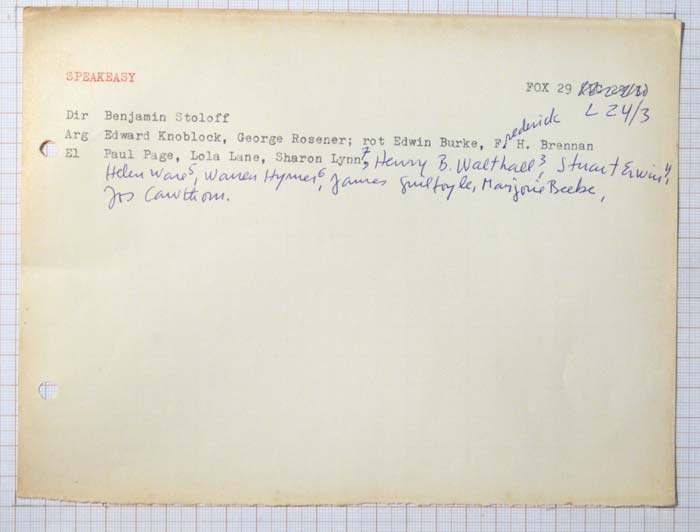 SPEAKEASY
FOX 29
L 24/3
Dir Benjamin Stoloff
Arg Edward Knoblock, George Rosener; rot Edwin Burke, Frederick H. Brennan
El Paul Page, Lola Lane, Sharon Lynn7, Henry B. Walthall3, Stuart Erwin4,
Helen Ware5, Warren Hymer6, James Guilfoyle, Marjorie Beebe,
Jos Cawthorn.